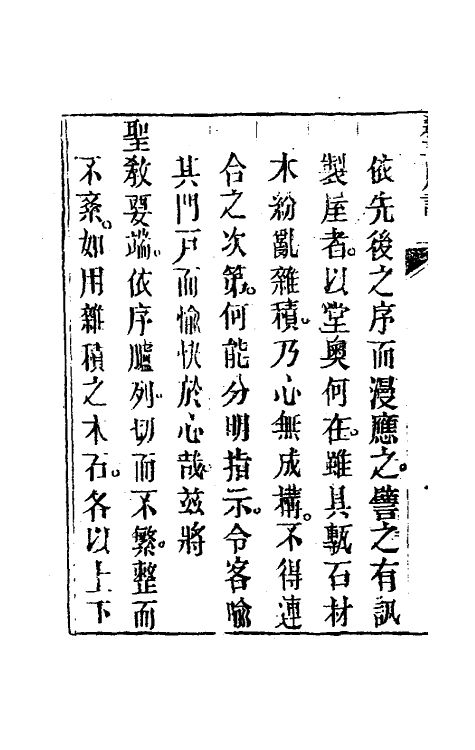 依先後之序而漫應之。譬之有訊
製屋者。以堂奧何在。雖具甎石材
木紛亂雜積。乃心無成構。不得連
合之次第。何能分明指示。令客喻
其門戸而愉快於心哉。茲將
聖敎要端。依序臚列。切而不繁。整而
不紊。如用雜積之木石。各以上下